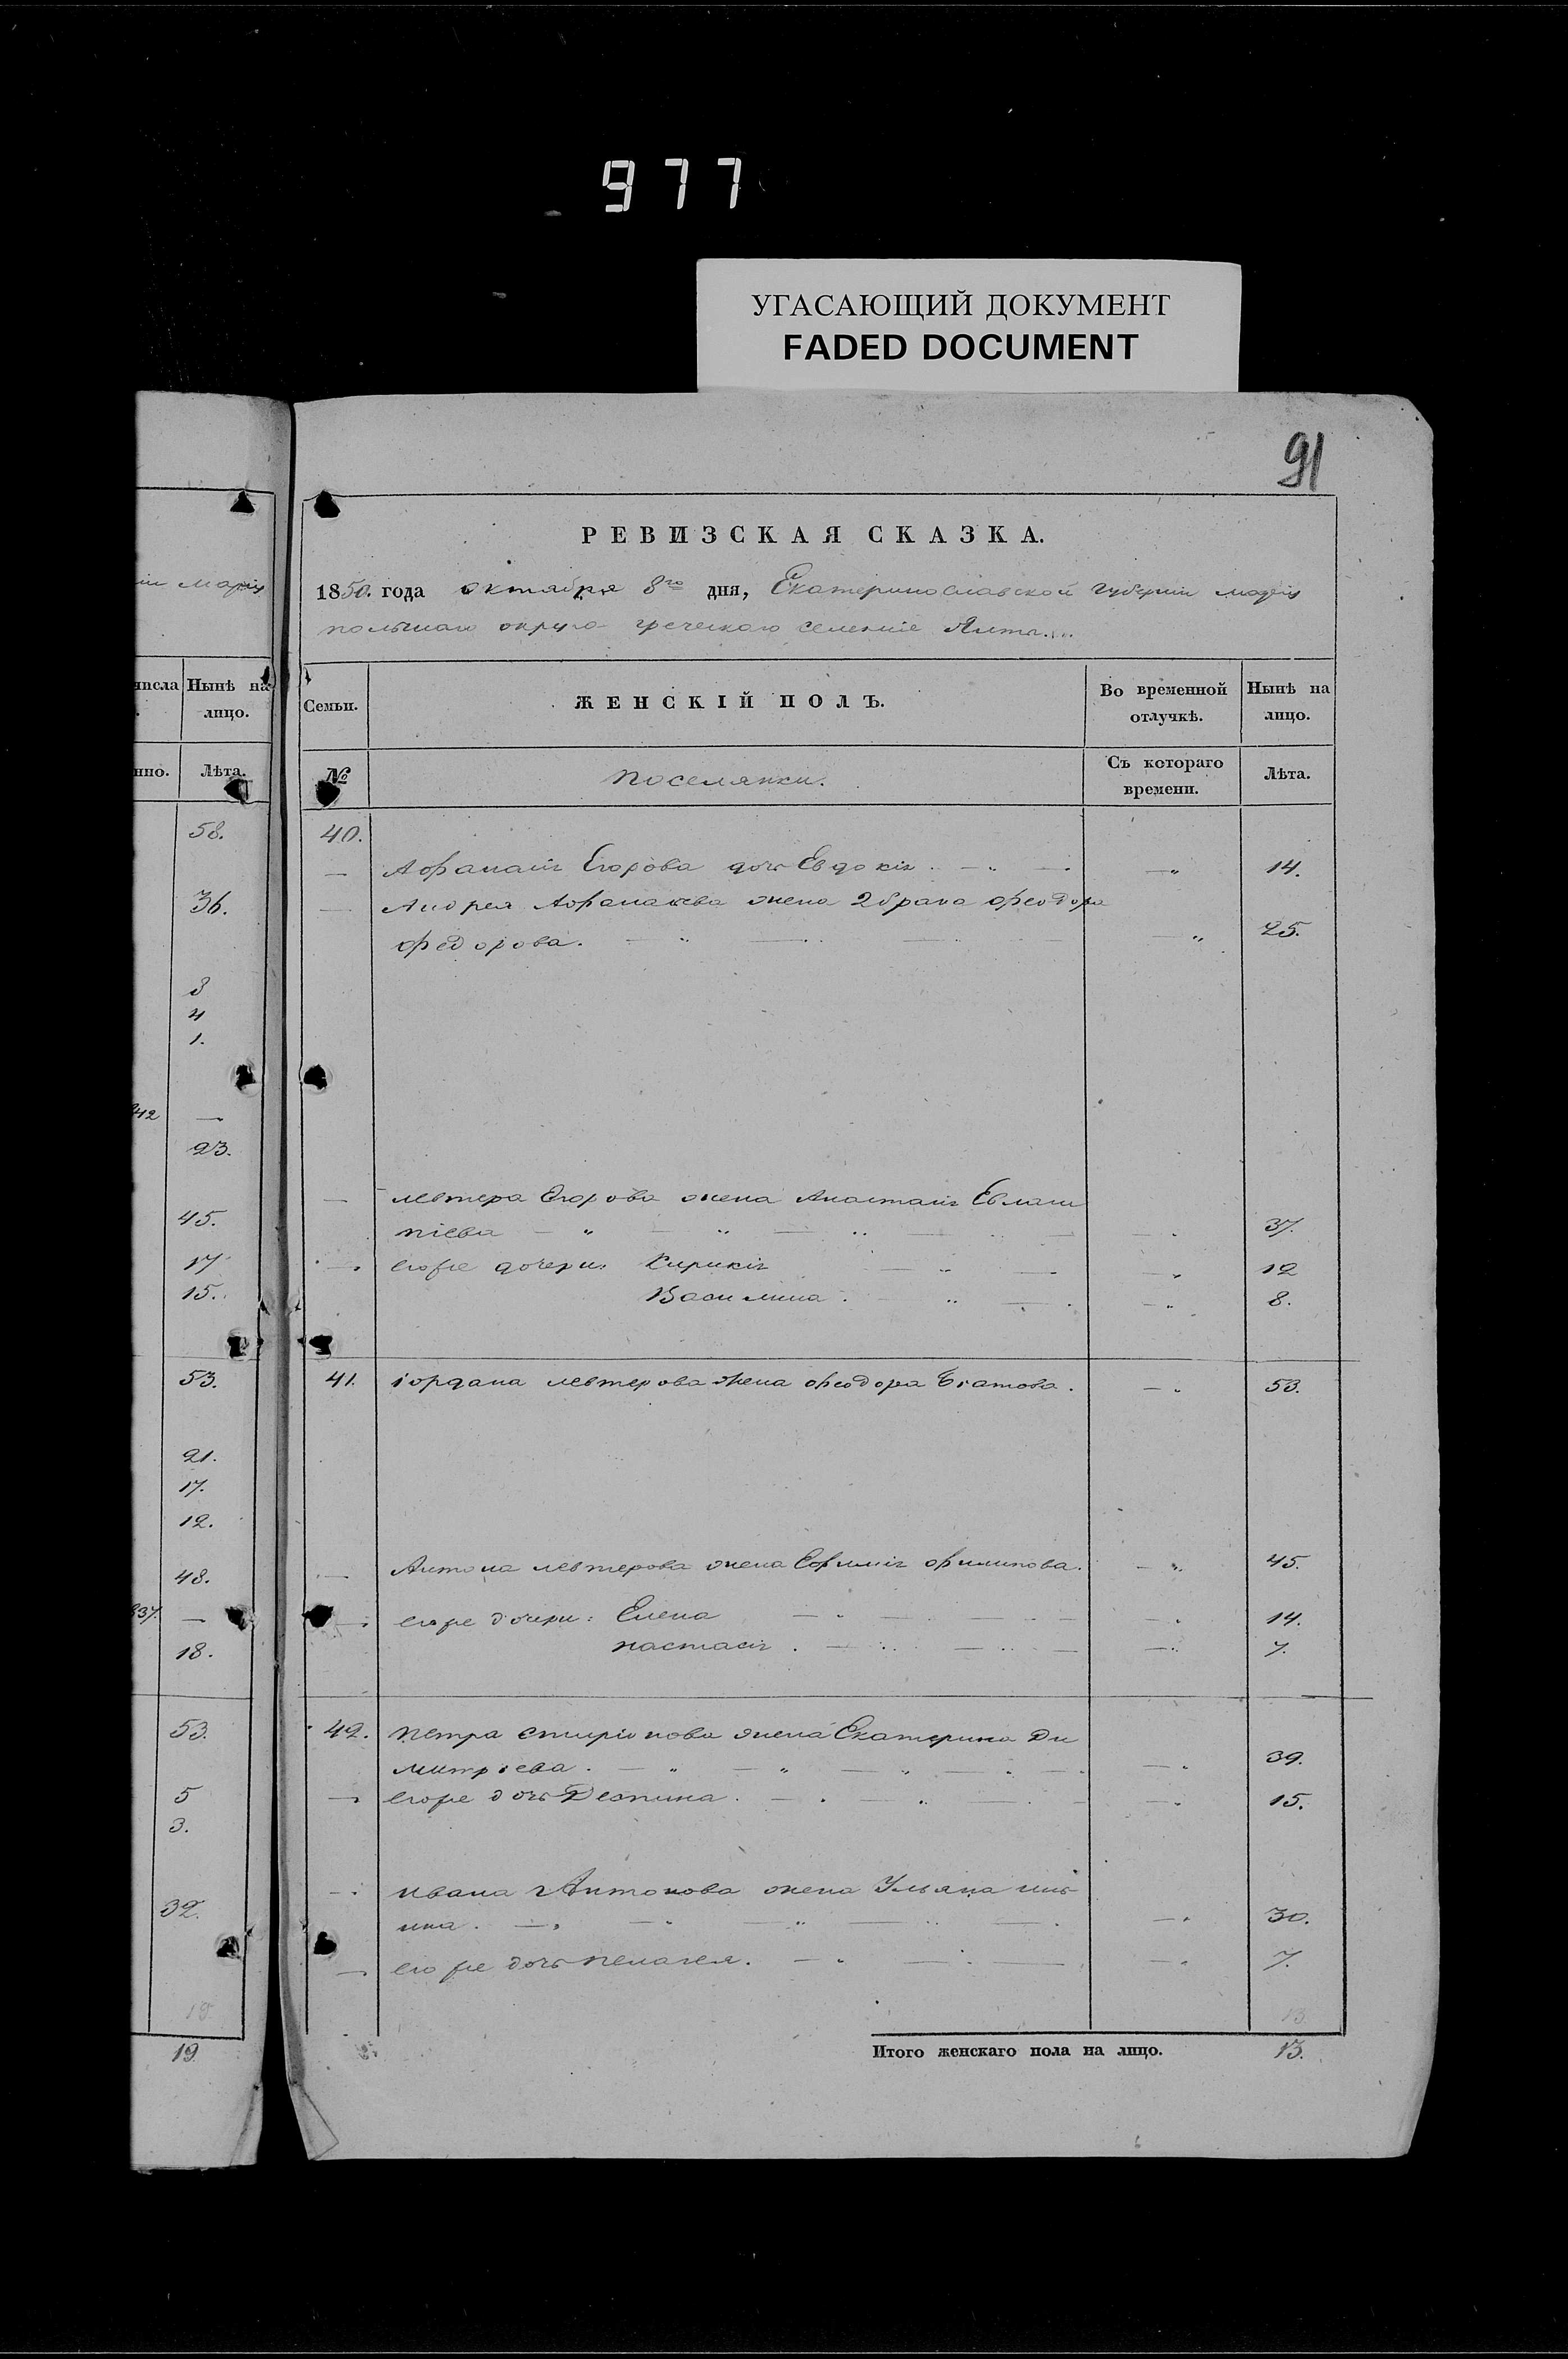 977
УГАСАЮЩИЙ ДОКУМЕНТ
FADED DOCUMENT
91
РЕВИЗСКАЯ СКАЗКА.
1850. года октября 8го дня, Екатеринославской губернии мариу
польскаго округа греческаго селенiе Ялта
Семьи.
ЖЕНСКІЙ ПОЛЪ.
Во временной отлучкѣ.
Нынѣ на лицо.
№
поселянки.
Съ котораго времени.
Лѣта.
40.
Афанасiя Егорова дочь Евдокiя 14.
Андрея Афанасьева жена 2 брака Феодора
Федорова. 25.
левтера Егорова жена Анастасiя Евлам
пiева 37.
его же дочери: Кирикiя 12
Василина 8.
41. iордана левтерова жена Феодора 53.
Антона левтерова жена Ефимiя Филипова. 45.
его же дочери: Елена 14.
настасiя 7.
42. петра спирiонова жена Екатерина Ди
митрiева 39.
его же дочь Деспина 15.
ивана Антонова жена Ульяна иль
ина 30.
его же дочь пелагея. 7.
13.
Итого женскаго пола на лицо. 13.
мариу
числа
Нынѣ на лицо.
Лѣта.
58.
36.
8
4
1.
842 —
23.
45.
17
15.
53.
21.
17.
12.
48.
837. —
18.
53.
5
3.
32.
19.
19.